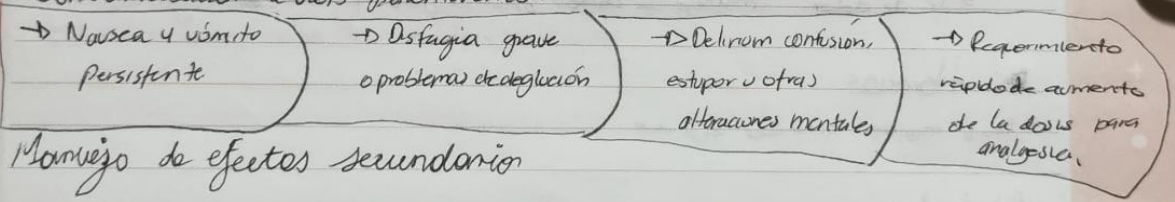 → Nausea y vómito
persistente
→ Disfagia grave
o problemas de deglución
→ Delirium confusión,
estupor u otras
alteraciones mentales
→ Requerimiento
rápido de aumento
de la dosis para
analgesia.
Manejo de efectos secundarios